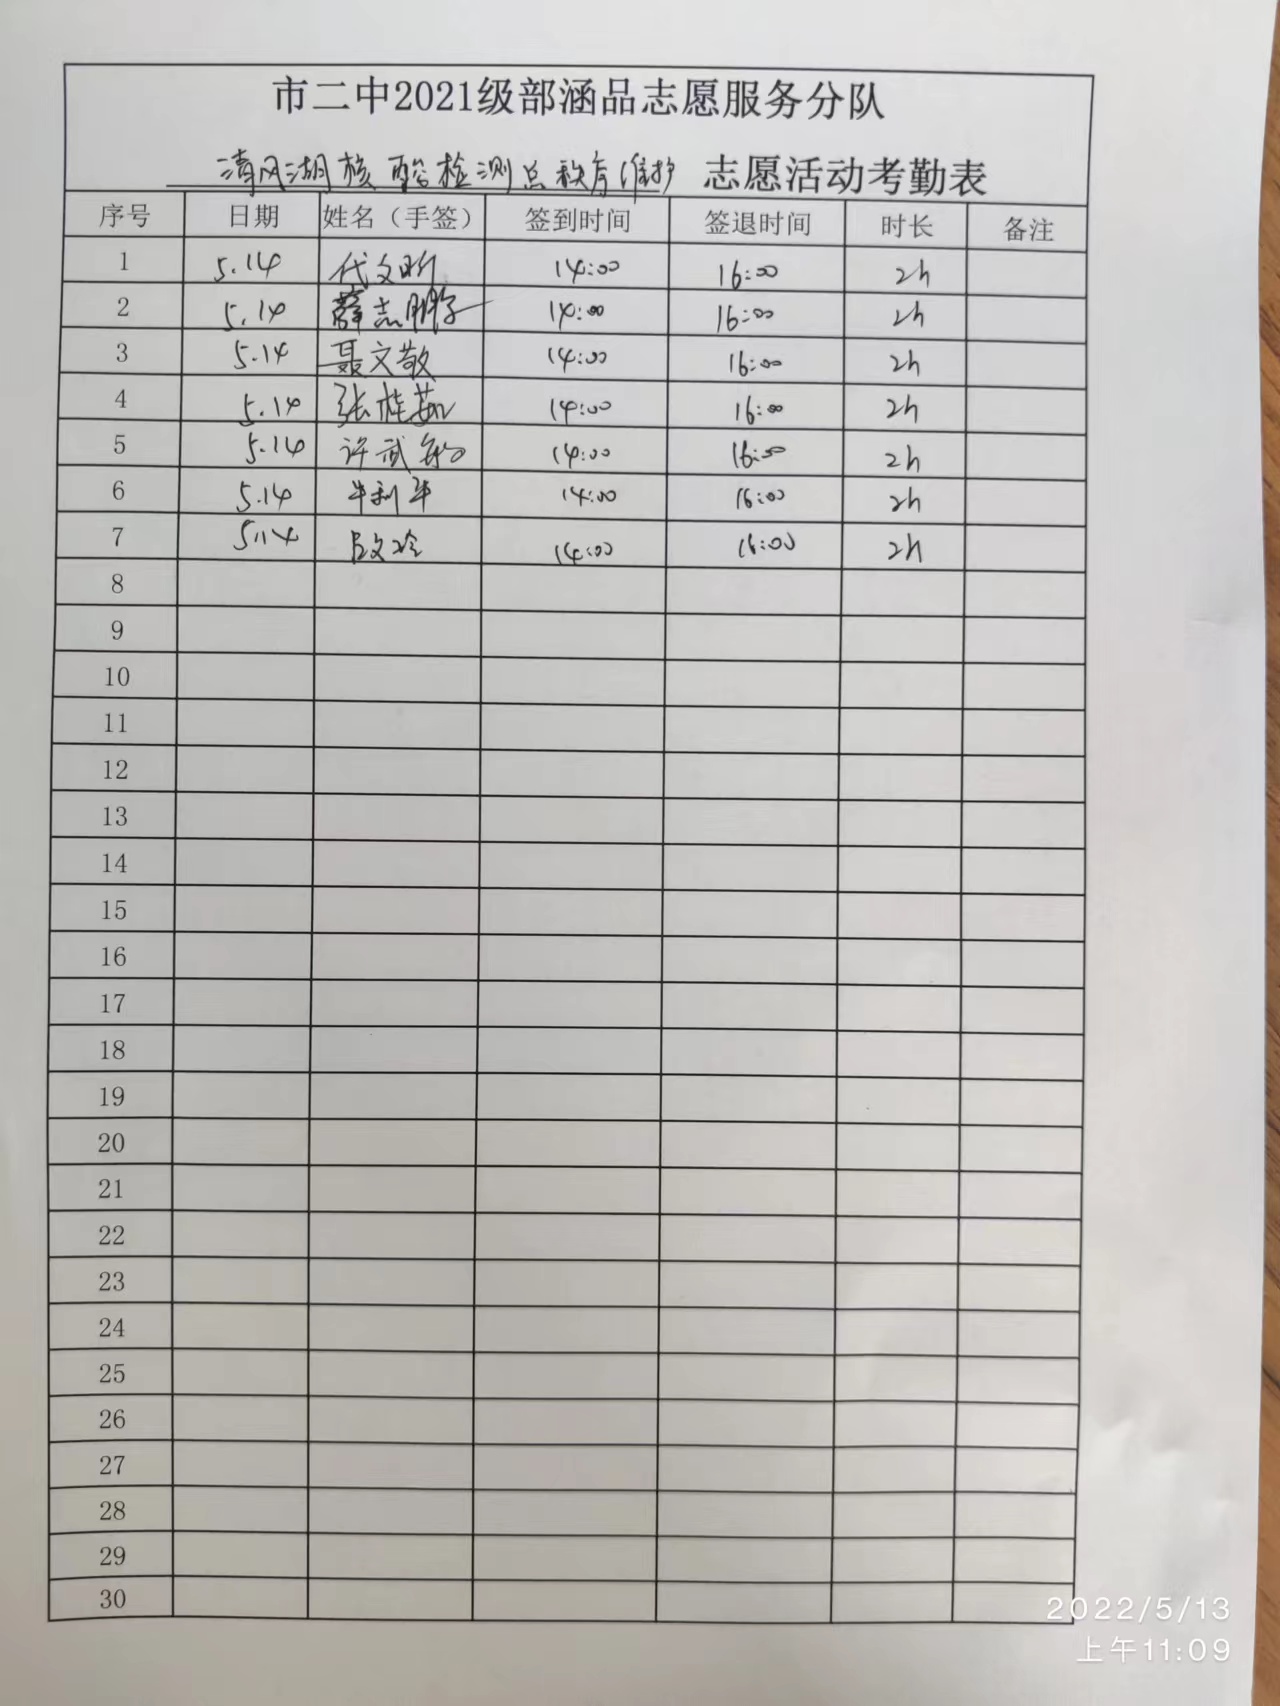 市二中2021级部涵品志愿服务分队
清风湖核酸检测点秩序维护 志愿活动考勤表
序号 日期 姓名（手签） 签到时间 签退时间 时长 备注
1 5.14 代文昕 14:00 16:00 2h
2 5.14 薛志鹏 14:00 16:00 2h
3 5.14 聂文敬 14:00 16:00 2h
4 5.14 张桂茹 14:00 16:00 2h
5 5.14 许武敏 14:00 16:00 2h
6 5.14 牛利军 14:00 16:00 2h
7 5.14 14:00 16:00 2h
8
9
10
11
12
13
14
15
16
17
18
19
20
21
22
23
24
25
26
27
28
29
30
2022/5/13
上午11:09